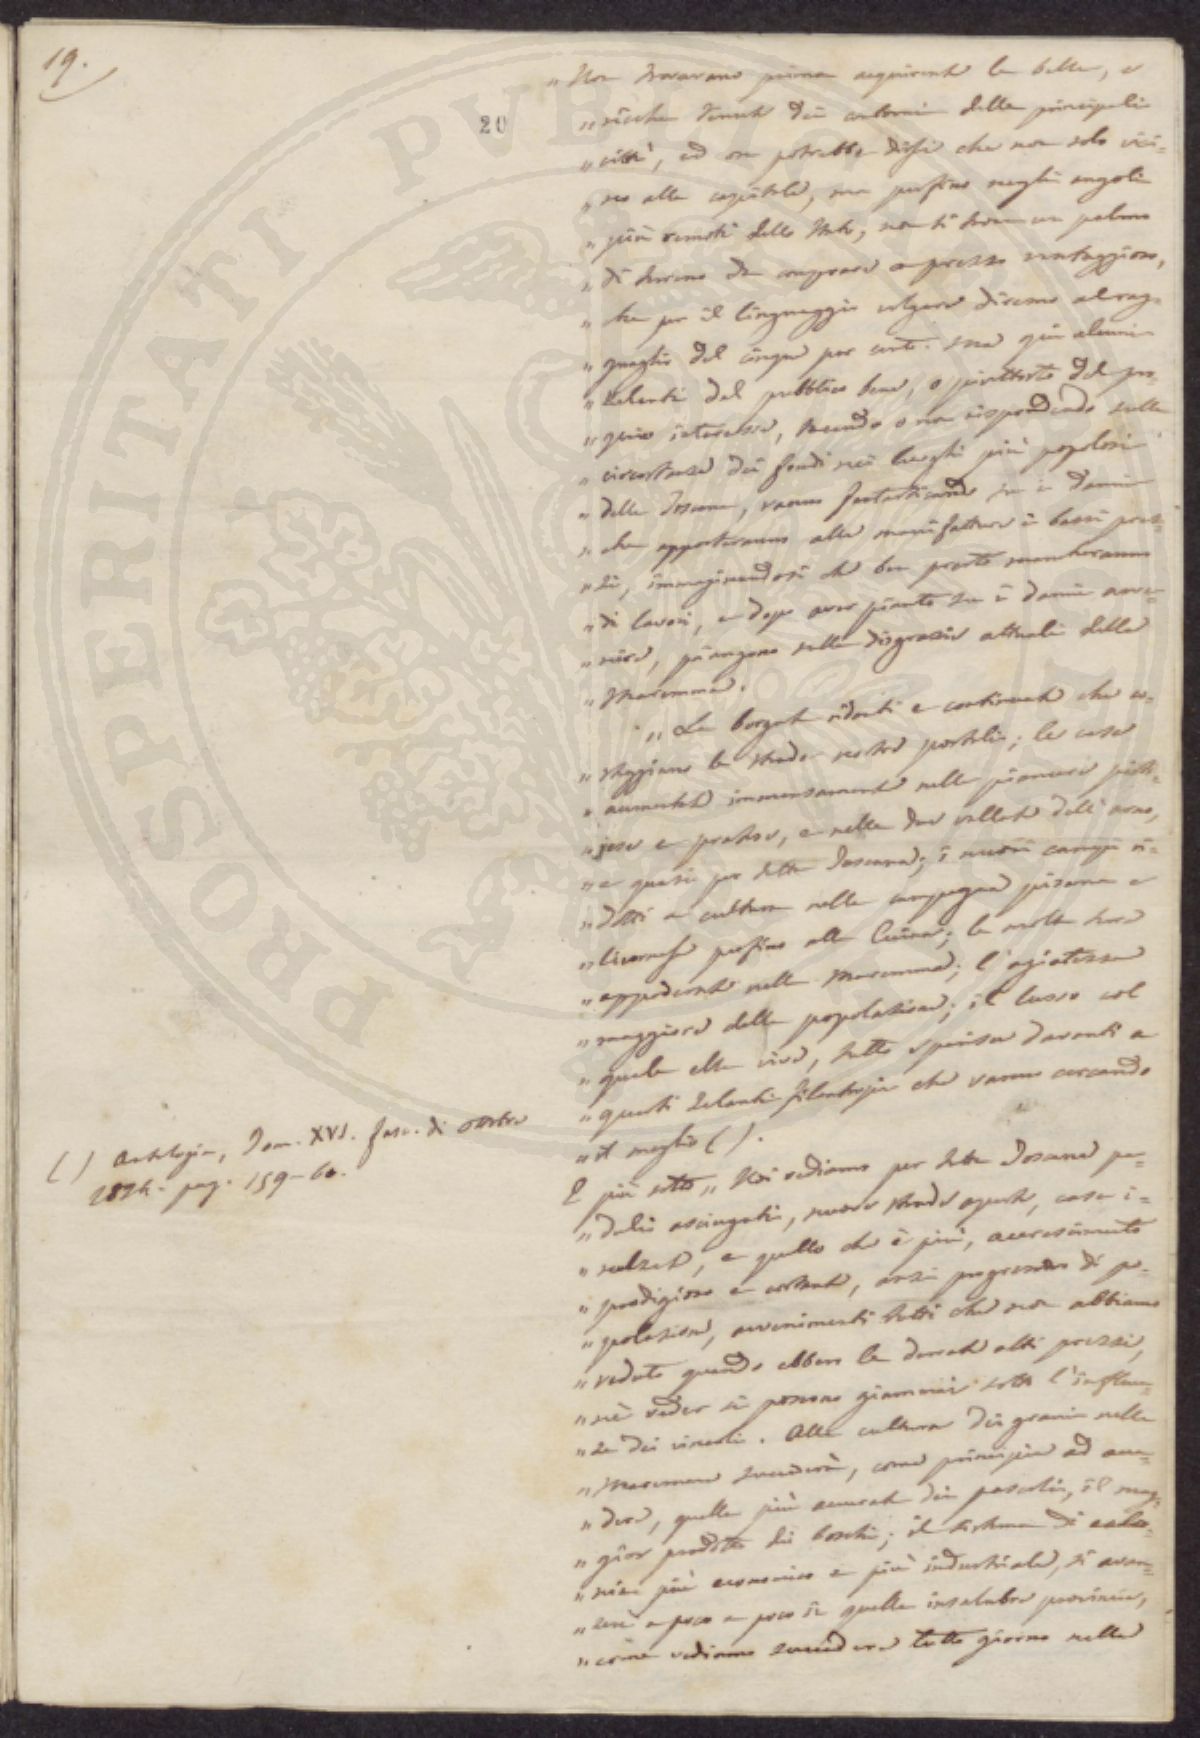 19.
20
„ Non trovavano prima acquirente le belle, e
„ ricche tenute dei contorni delle principali
„ città, ed ora potrebbe dirsi che non solo vici-
„ no alla capitale, ma perfino negli angoli
„ più remoti dello Stato, non si trova un palmo
„ di terreno da comprare a prezzo vantaggioso,
„ che per il linguaggio volgare diremo al rag-
„ guaglio del cinque per cento. Ma qui alcuni
„ zelanti del pubblico bene, o piuttosto del pro-
„ prio interesse, tacendo o non rispondendo sulla
„ circostanza dei fondi nei luoghi più popolosi
„ della Toscana, vanno fantasticando su i danni
„ che apporteranno alle manifatture i bassi prez-
„ zi, immaginandosi che ben presto mancheranno
„ di lavori, e dopo aver pianto su i danni avve-
„ nire, piangono sulle disgrazie attuali della
„ Maremma.
„ Le borgate ridenti e continuate che co-
„ steggiano le strade nostre postali; le case
„ aumentate immensamente nelle pianure pisto-
„ jese e pratese, e nelle due vallate dell'arno,
„ e quasi per tutta Toscana; i nuovi campi ri-
„ dotti a cultura nella campagna pisana e
„ livornese perfino alla Cecina; le molte terre
„ appoderate nelle Maremme; l'agiatezza
„ maggiore della popolazione; il lusso col
„ quale ella vive, tutto sparisce davanti a
„ questi zelanti filantropi che vanno cercando
„ il meglio ( ).
( ) Antologia, Tom. XVI. fasc. di ottobre
1824. pag. 159-60.
E più sotto „ Noi vediamo per tutta Toscana pa-
„ duli asciugati, nuove strade aperte, case i-
„ nalzate, e quello che è più, accrescimento
„ prodigioso e costante, anzi progressivo di po-
„ polazione, avvenimenti tutti che non abbiamo
„ veduto quando ebbero le derrate alti prezzi,
„ nè veder si possono giammai sotto l'influen-
„ za dei vincoli. Alla cultura dei grani nelle
„ Maremme succederà, come principia ad acca-
„ dere, quella più accurata dei pascoli, il mag-
„ gior prodotto dei boschi; il sistema di colo-
„ nia più economico e più industriale, si avan-
„ zerà a poco a poco in quella insalubre provincia,
„ come vediamo succedere tutto giorno nelle
PROSPERITATI PUBLICAE